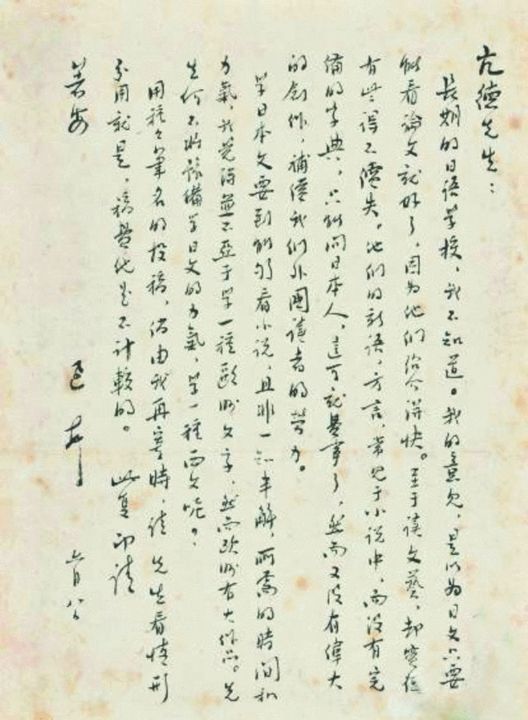 亢德先生：
長期的日語學校，我不知道。我的意見，是以为日文只要
能看論文就好了，因为他們紹介得快。至于讀文藝，却實在
有些得不償失。他們的新語，方言，常見于小説中，而没有完
備的字典，只能問日本人，這可就費事了，然而又没有偉大
的創作，補償我們外國讀者的勞力。
學日本文要到能夠看小説，且非一知半解，所需的時間和
力氣，我覺得並不亞于學一種歐洲文字，然而歐洲有大作品。先
生何不將豫備學日文的力氣，學一種西文呢？
用種々筆名的投稿，倘由我再寄時，請 先生看情形
分用就是，稿費他是不計較的。 此复，即請
著安 迅 上 六月八日